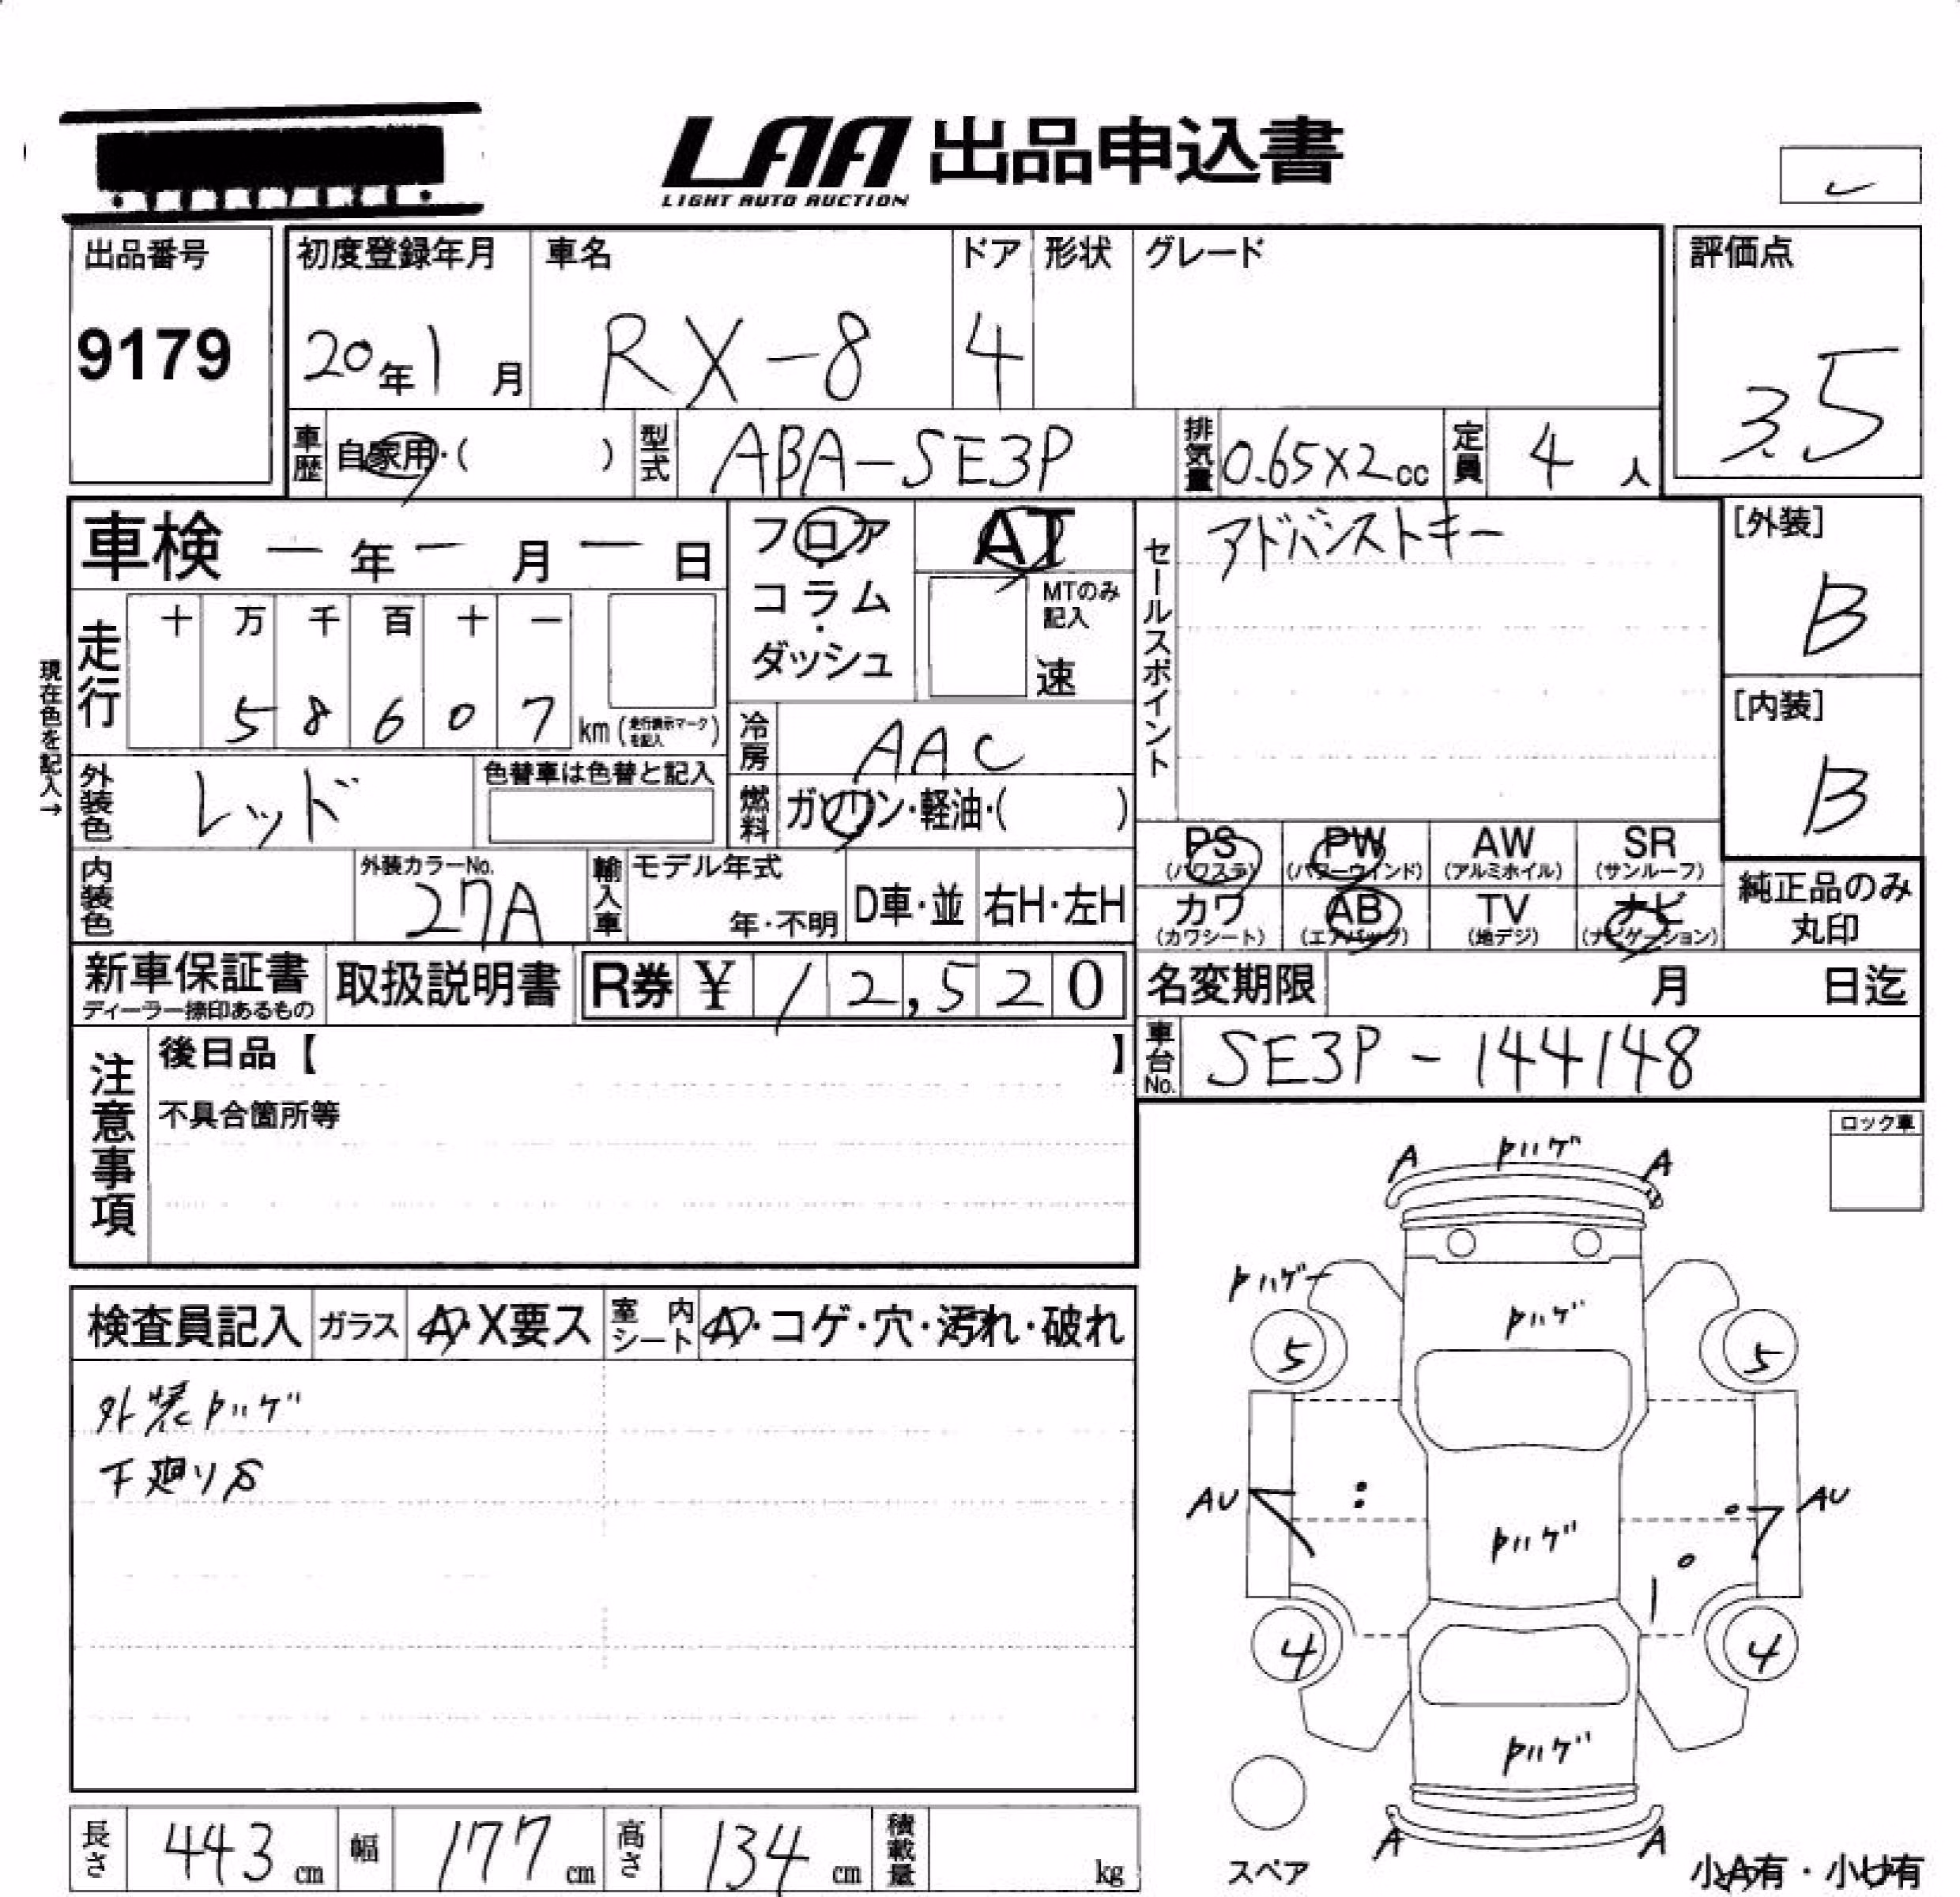 LAA 出品申込書
LIGHT AUTO AUCTION
出品番号
9179
初度登録年月
20年1月
車名
RX-8
ドア
4
形状
グレード
評価点
3.5
車歴
自家用・( )
型式
ABA-SE3P
排気量
0.65×2cc
定員
4人
車検 ー年ー月ー日
フロア
・
コラム
・
ダッシュ
AT
MTのみ
記入
速
セールスポイント
アドバンストキー
[外装]
B
[内装]
B
現在色を記入→
走行
十 万 千 百 十 一
5 8 6 0 7 km (走行表示マークを記入)
冷房
AAC
外装色
レッド
色替車は色替と記入
燃料
ガソリン・軽油・( )
PS
(パワステ)
PW
(パワーウィンド)
AW
(アルミホイル)
SR
(サンルーフ)
内装色
外装カラーNo.
27A
輸入車
モデル年式
年・不明
D車・並
右H・左H
カワ
(カワシート)
AB
(エアバッグ)
TV
(地デジ)
ナビ
(ナビゲーション)
純正品のみ
丸印
新車保証書
ディーラー捺印あるもの
取扱説明書
R券 ¥12,520
名変期限 月 日迄
車台No.
SE3P-144148
注意事項
後日品【 】
不具合箇所等
ロック車
検査員記入
ガラス
A・X要ス
室内
シート
A・コゲ・穴・汚れ・破れ
外装トハゲ
下廻りS
A トハゲ A
トハゲ
トハゲ
5 5
AU AU
トハゲ
4 4
トハゲ
A A
スペア
小A有・小U有
長さ 443 cm
幅 177 cm
高さ 134 cm
積載量 kg